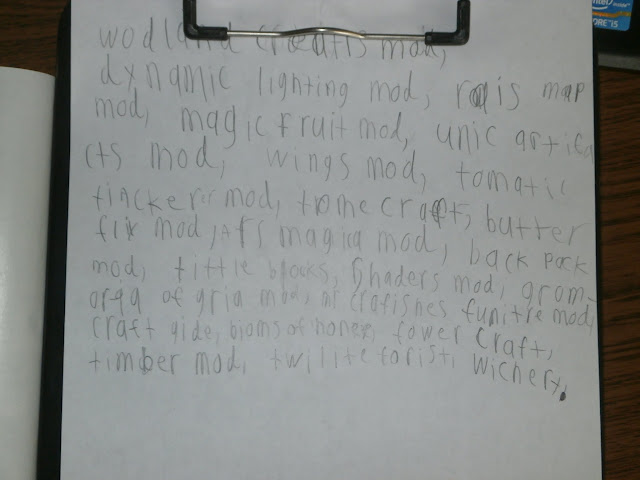 wodland creatis mod,
dxnamic lighting mod, rais map
mod, magic fruit mod, unic artica
cts mod, wings mod, tomatic
tincker mod, tome craft, butter
flix mod, ars magica mod, back pack
mod, tittle blocks, Shaders mod, grom-
orga of gria mod, mr crafishes funitre mod,
craft gide, bioms of honey, tower craft,
timber mod, twilite forist, wichery.
intel
inside
CORE i5